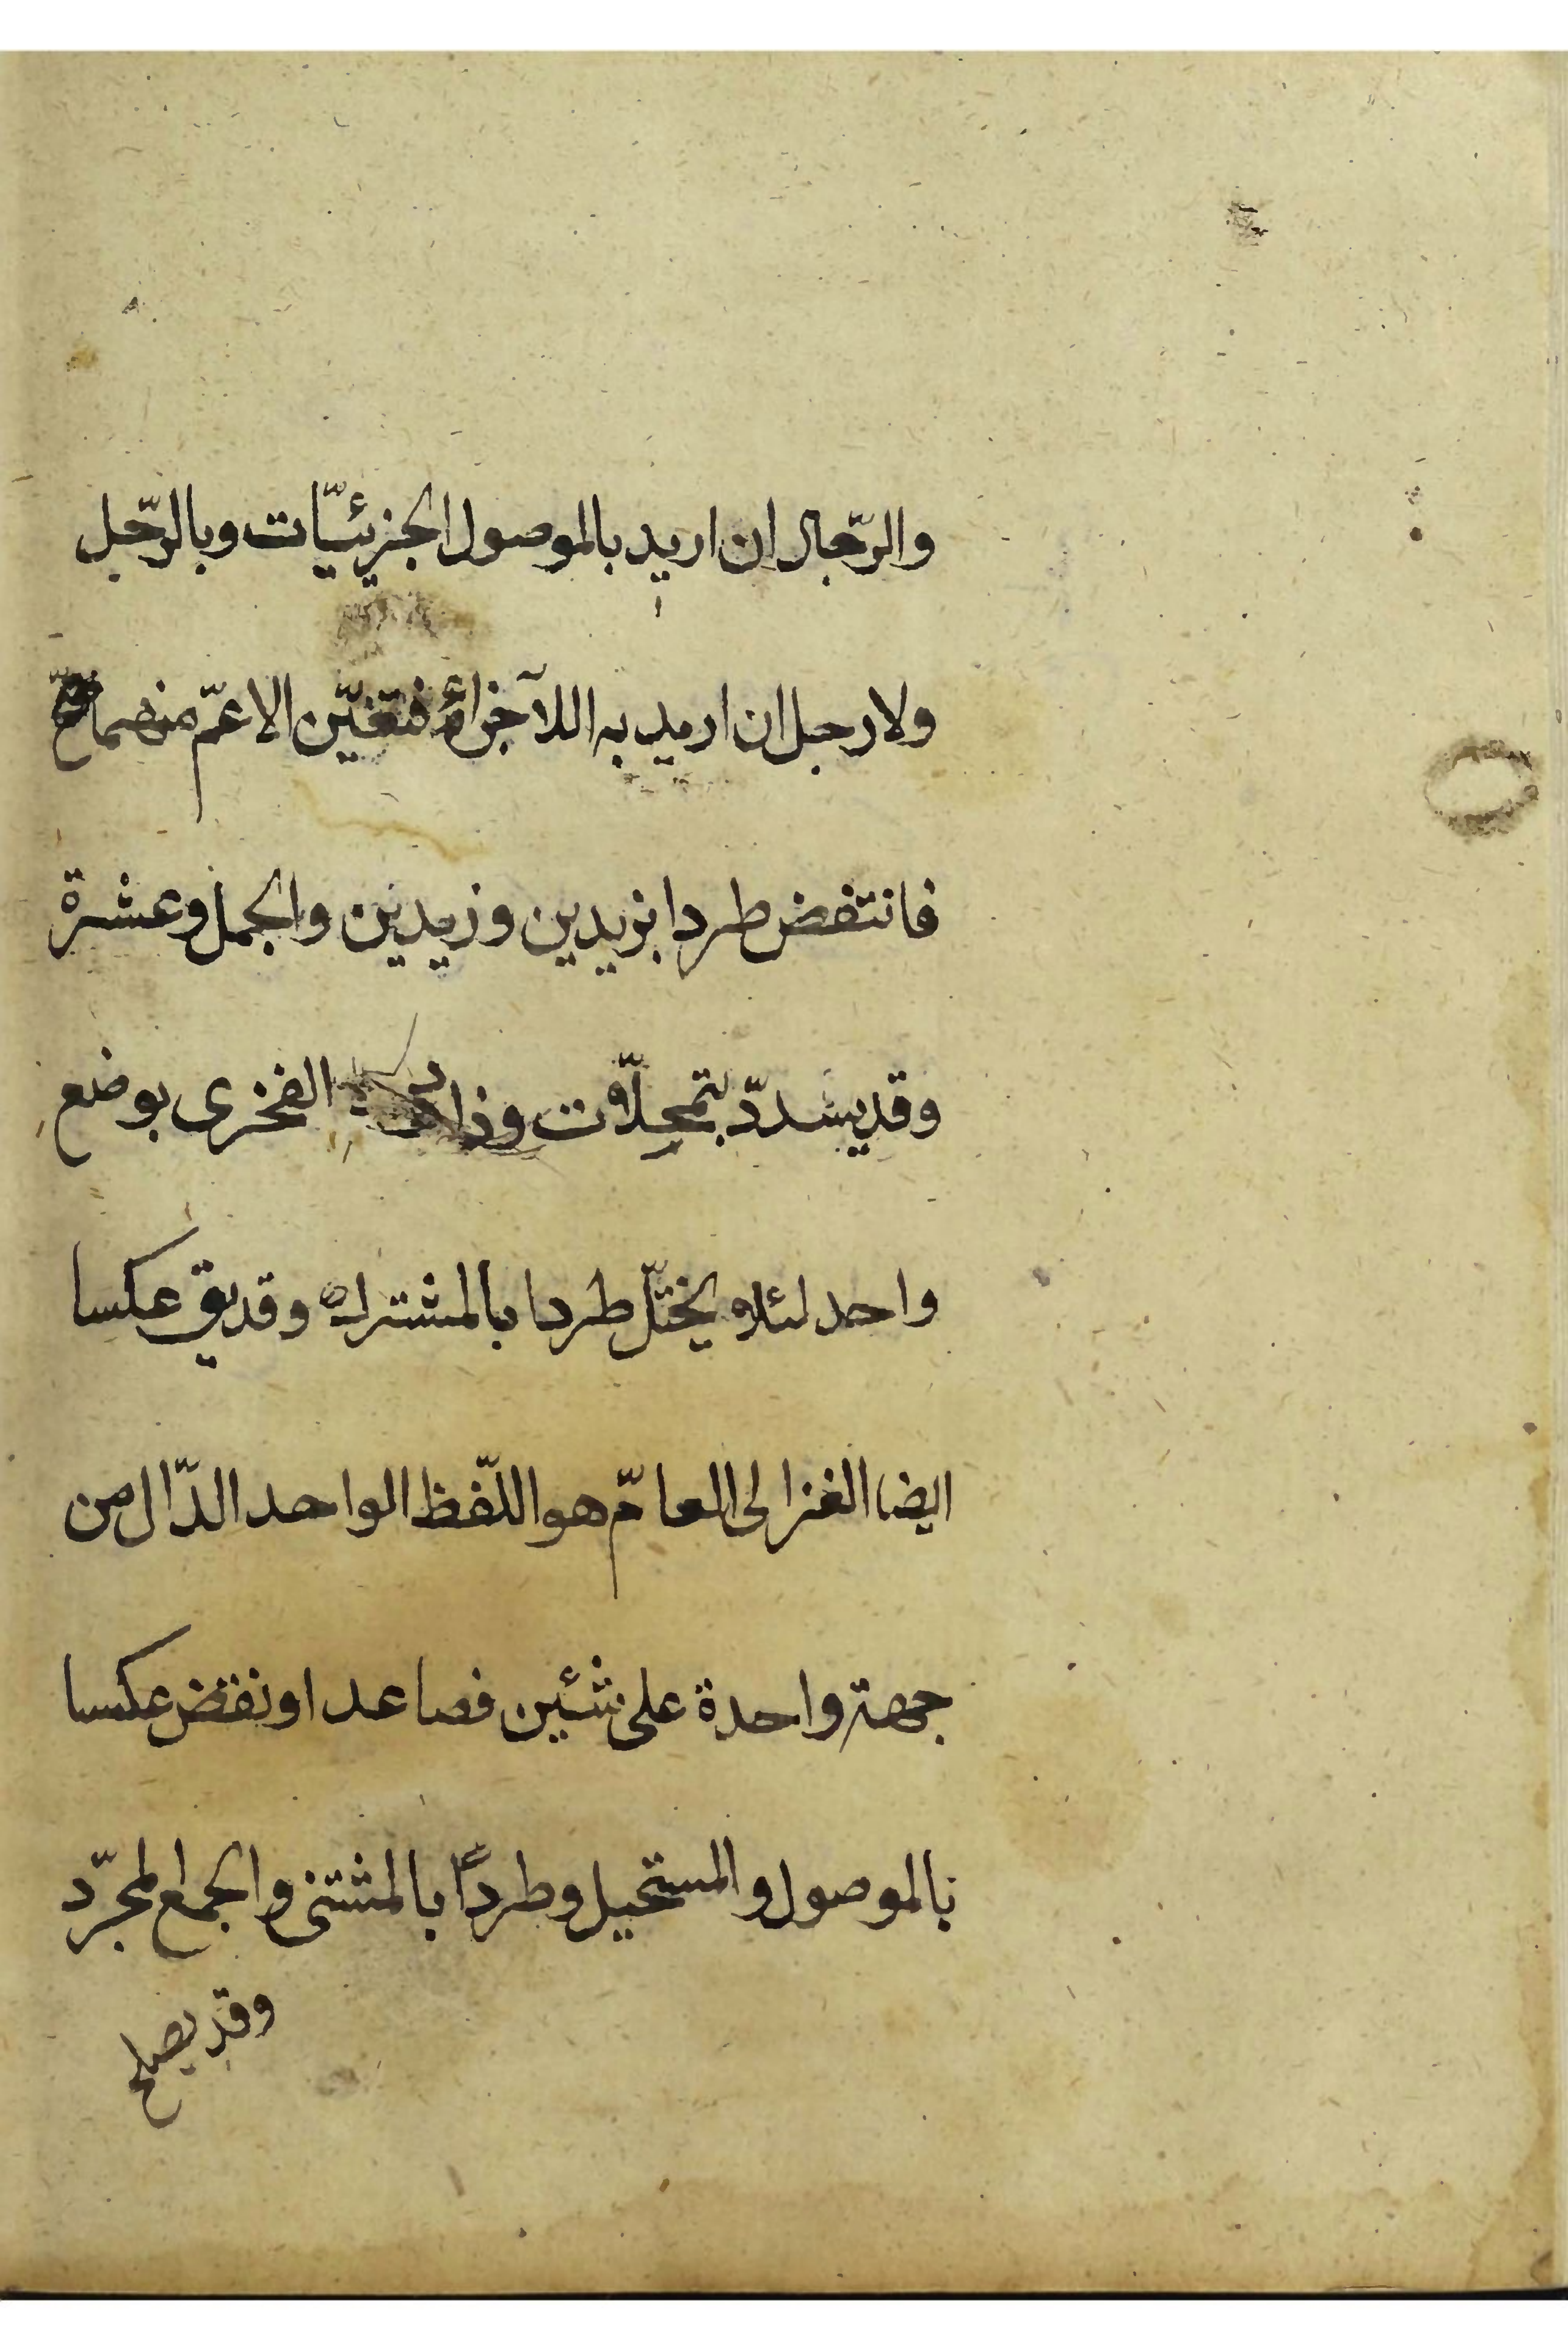 والرّجال ان اريد بالموصول الجزئيّات وبالرّجل
ولا رجل ان اريد به الاجزاء فتعيّن الاعمّ منهما
فانتقض طردا بزيدين وزيدين والجمل وعشرة
وقد يسدد بتمحلّات وزاد الفخرى بوضع
واحد لئلا يختلّ طردا بالمشترك وقد يق عكسا
ايضا الغزالى العامّ هو اللّفظ الواحد الدّال من
جهة واحدة على شئين فصاعدا ونقض عكسا
بالموصول والمستحيل وطرداً بالمثنى والجمع المجرّد
وقد يصلح